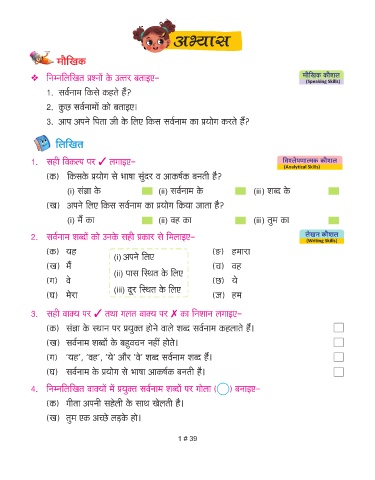 अभ्यास
मौखिक
❖ निम्नलिखित प्रश्नों के उत्तर बताइए-
मौखिक कौशल
(Speaking Skills)
1. सर्वनाम किसे कहते हैं?
2. कुछ सर्वनामों को बताइए।
3. आप अपने पिता जी के लिए किस सर्वनाम का प्रयोग करते हैं?
लिखित
1. सही विकल्प पर ✓ लगाइए-
विश्लेषणात्मक कौशल
(Analytical Skills)
(क) किसके प्रयोग से भाषा सुंदर व आकर्षक बनती है?
(i) संज्ञा के (ii) सर्वनाम के (iii) शब्द के
(ख) अपने लिए किस सर्वनाम का प्रयोग किया जाता है?
(i) मैं का (ii) वह का (iii) तुम का
2. सर्वनाम शब्दों को उनके सही प्रकार से मिलाइए-
लेखन कौशल
(Writing Skills)
(क) यह (i) अपने लिए (ङ) हमारा
(ख) मैं (ii) पास स्थित के लिए (च) वह
(ग) वे (iii) दूर स्थित के लिए (छ) ये
(घ) मेरा (ज) हम
3. सही वाक्य पर ✓ तथा गलत वाक्य पर ✗ का निशान लगाइए-
(क) संज्ञा के स्थान पर प्रयुक्त होने वाले शब्द सर्वनाम कहलाते हैं।
(ख) सर्वनाम शब्दों के बहुवचन नहीं होते।
(ग) ‘यह’, ‘वह’, ‘ये’ और ‘वे’ शब्द सर्वनाम शब्द हैं।
(घ) सर्वनाम के प्रयोग से भाषा आकर्षक बनती है।
4. निम्नलिखित वाक्यों में प्रयुक्त सर्वनाम शब्दों पर गोला ( ) बनाइए-
(क) गीता अपनी सहेली के साथ खेलती है।
(ख) तुम एक अच्छे लड़के हो।
1 # 39